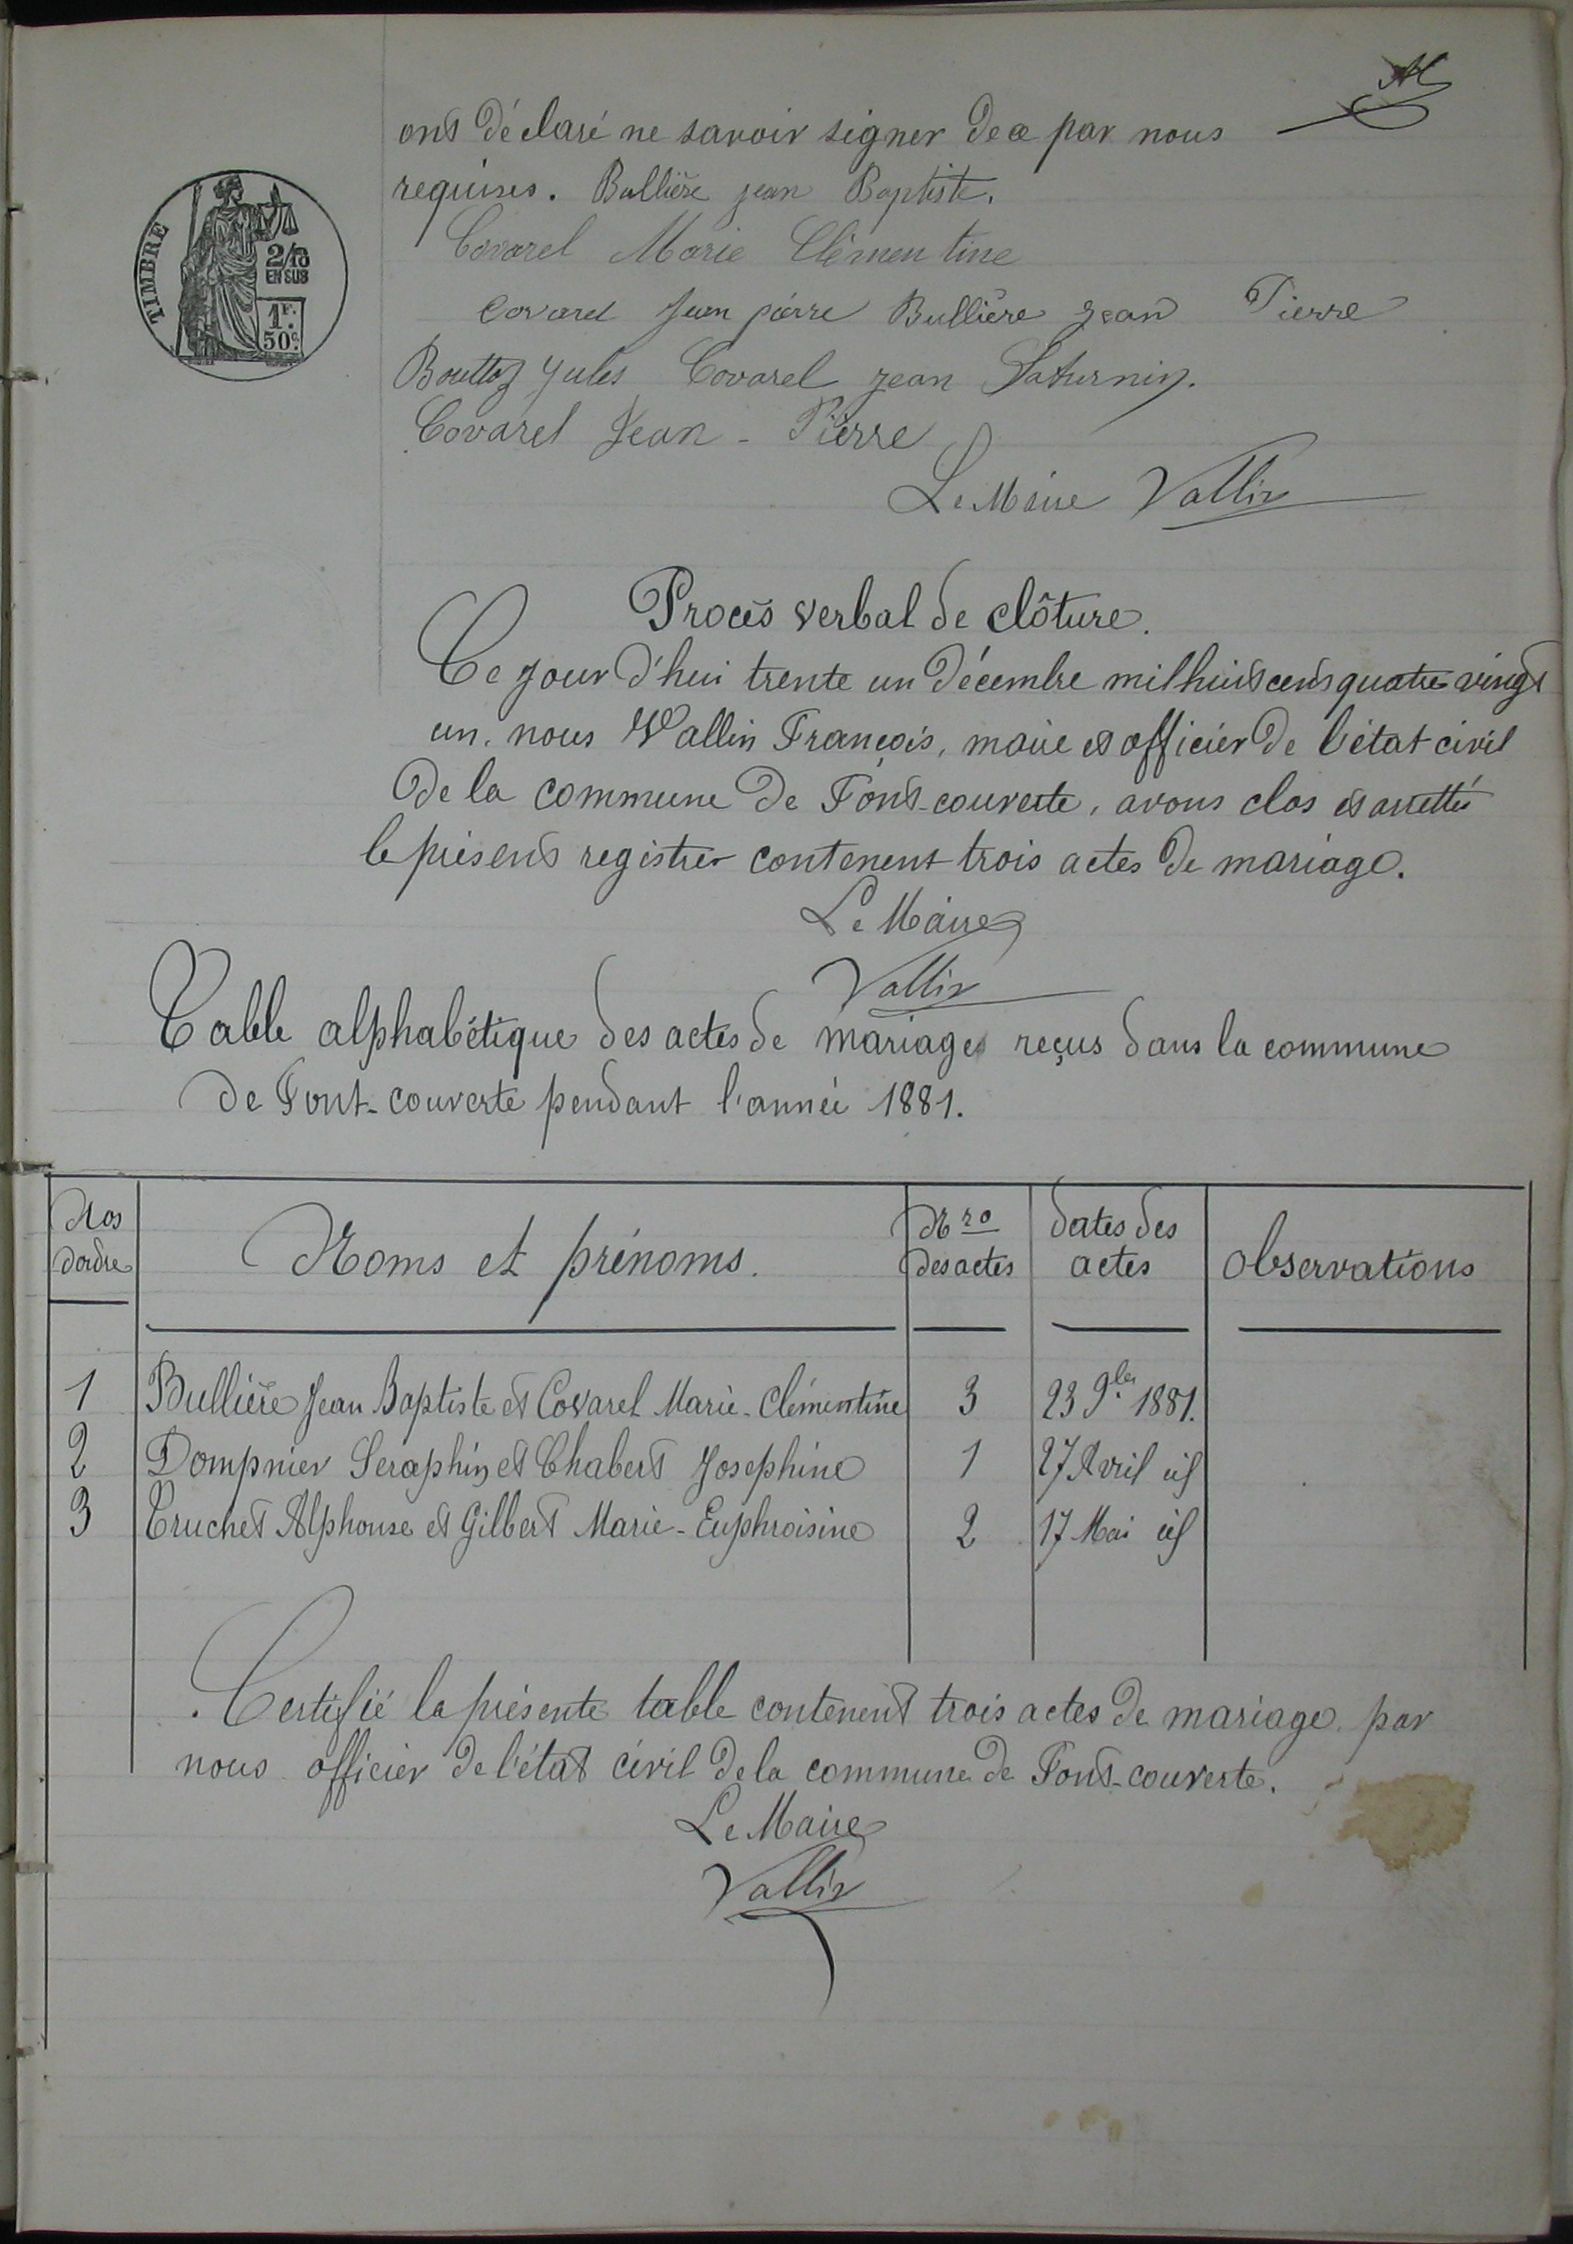 ont déclaré ne savoir signer de ce par nous
requises. Bullière jean Baptiste.
TIMBRE
2/10
EN SUS
1F.
50c.
Covarel Marie Clémentine
Covarel Jean pierre Bullière Jean Pierre
Bouttaz Jules Covarel Jean Saturnin.
Covarel Jean - Pierre
Le Maire Vallin
Procès verbal de clôture.
Ce jour d'hui trente un décembre mil huit cent quatre vingt
un, nous Vallin François, maire et officier de l'état civil
de la commune de Font-couverte, avons clos et arretté
le présent registre contenent trois actes de mariage.
Le Maire
Vallin
Table alphabétique des actes de mariages reçus dans la commune
de Font-couverte pendant l'année 1881.
Nos d'ordre Noms et prénoms. Nro des actes dates des actes observations
1 Bullière Jean Baptiste et Covarel Marie-Clémentine 3 23 9bre 1881.
2 Dompnier Séraphin et Chabert Josephine 1 27 Avril id
3 Truchet Alphonse et Gilbert Marie-Euphroisine 2 17 Mai id
Certifié la présente table contenent trois actes de mariage par
nous officier de l'état civil de la commune de Font-couverte.
Le Maire
Vallin